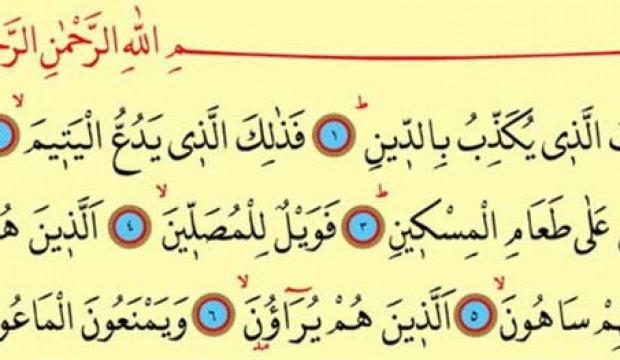 مِ اللهِ الرَّحْمٰنِ الرَّحـ
الَّذ۪ي يُكَذِّبُ بِالدّ۪ينِۜ ﴿١﴾ فَذٰلِكَ الَّذ۪ي يَدُعُّ الْيَت۪يمَۙ
عَلٰى طَعَامِ الْمِسْك۪ينِۜ ﴿٣﴾ فَوَيْلٌ لِلْمُصَلّ۪ينَۙ ﴿٤﴾ اَلَّذ۪ينَ هُـ
ـهِمْ سَاهُونَۙ ﴿٥﴾ اَلَّذ۪ينَ هُمْ يُرَٓاؤُ۫نَۙ ﴿٦﴾ وَيَمْنَعُونَ الْمَاعُو